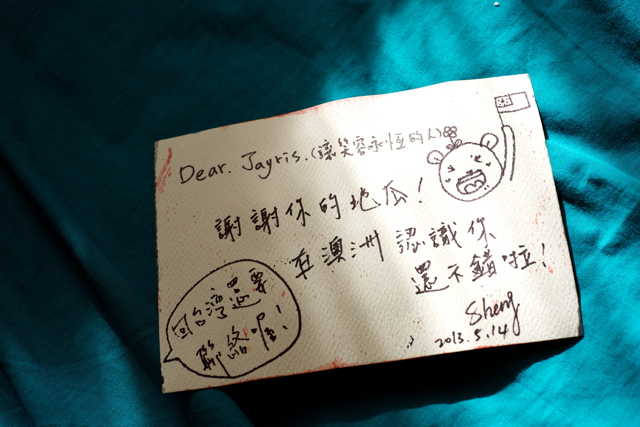 Dear. Jayris. (讓笑容永恆的人)
謝謝你的地瓜!
在澳洲認識你
還不錯啦!
Sheng
2013.5.14
回台灣還要
聯絡喔!